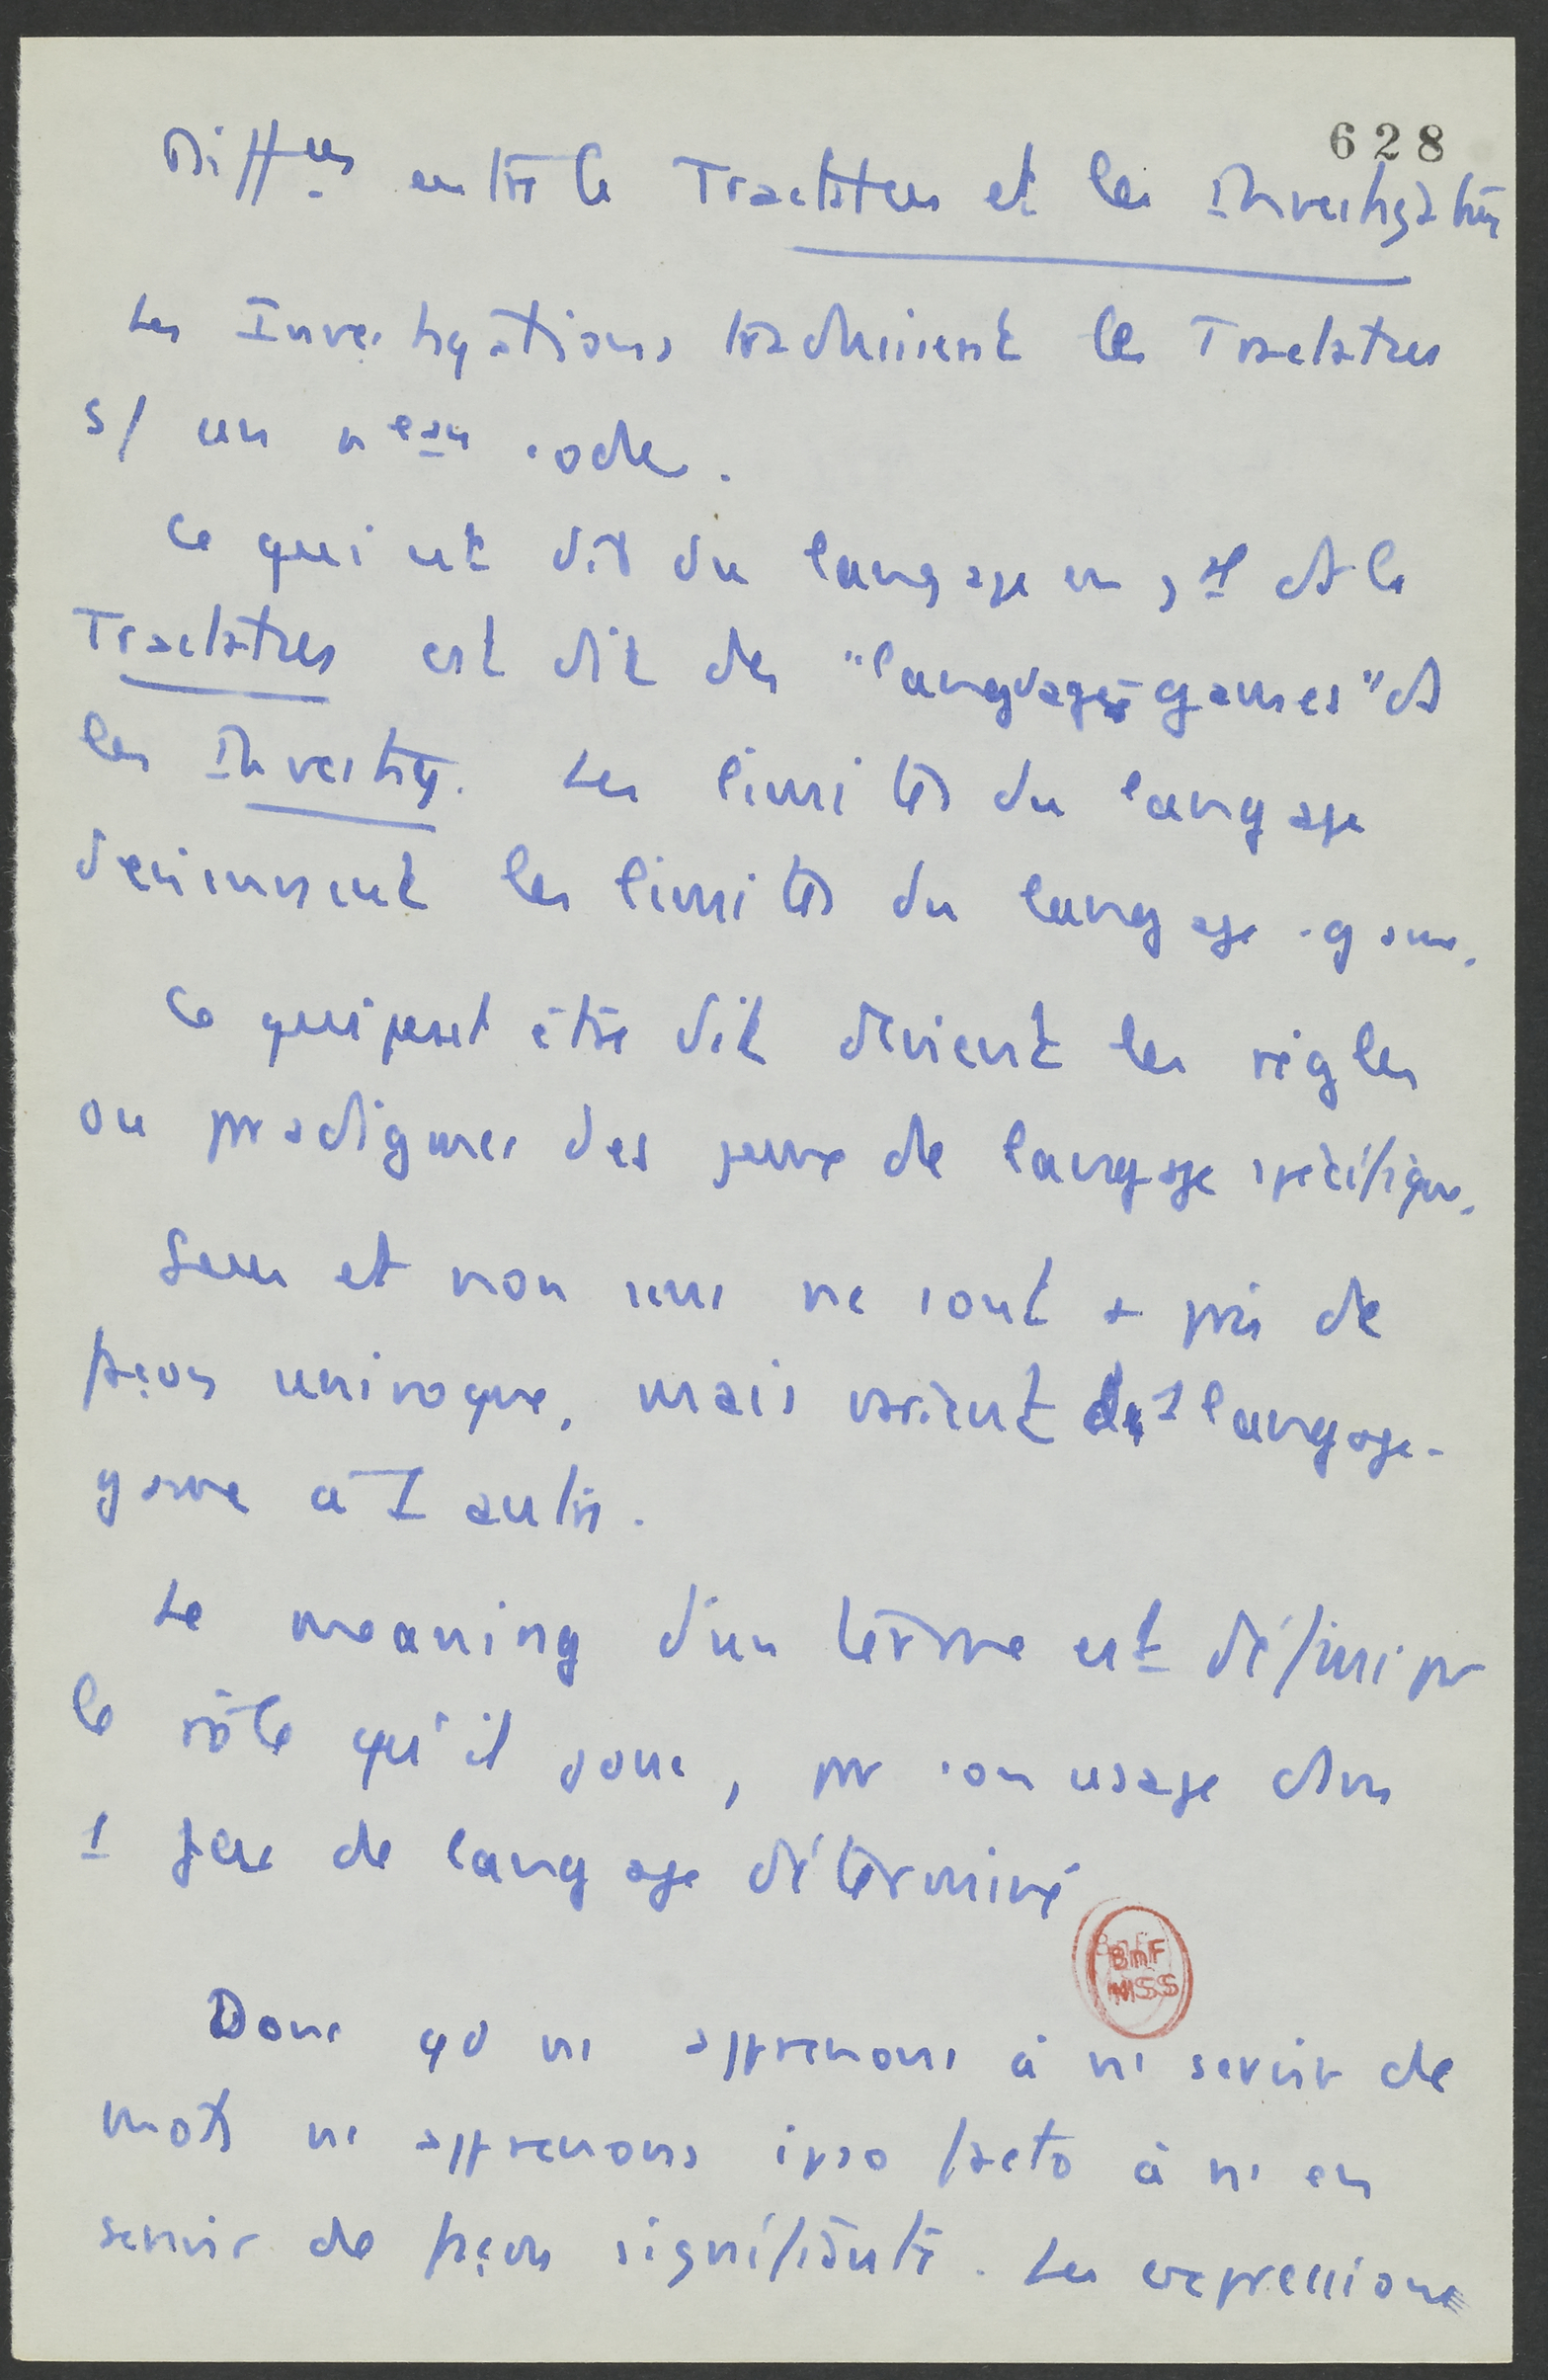 628
Diff^ces entre le Tractatus et les Investigations
Les Investigations traduisent le Tractatus
s/ un n^eau code.
Ce qui est dit du langage en g^al ds le
Tractatus est dit des "language-games" ds
les Investig. Les limites du langage
deviennent les limites du langage-game.
Ce qui peut être dit devient les règles
ou paradigmes des jeux de langage spécifiques.
Sens et non sens ne sont + pris de
façon univoque, mais varient de 1 langage-
game à 1 autre.
Le meaning d'un terme est défini par
le rôle qu'il joue, par son usage dans
1 jeu de langage déterminé
BnF
MSS
Donc qd ns apprenons à ns servir de
mots ns apprenons ipso facto à ns en
servir de façon signifiante. Les expressions